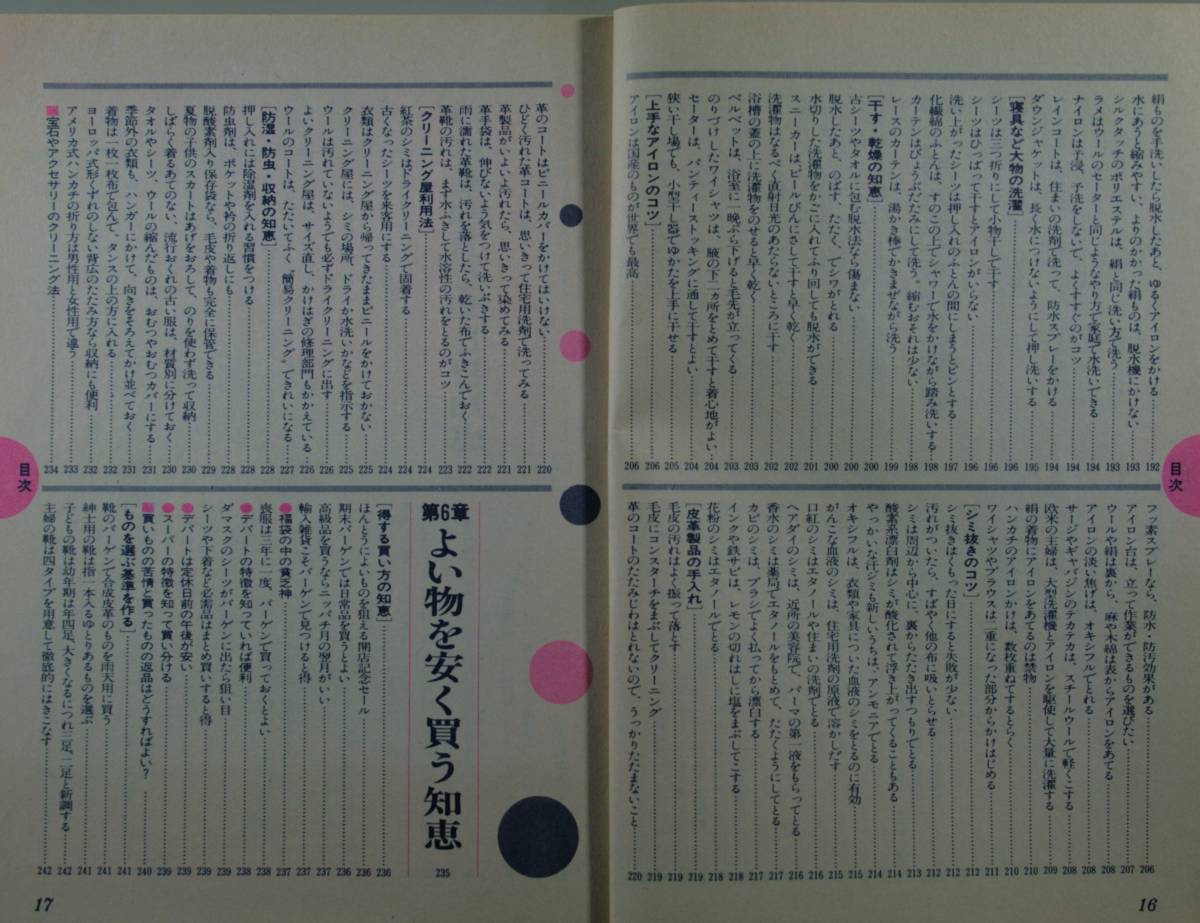 絹ものを手洗いしたら脱水したあと、ゆるくアイロンをかける 192
水にあうと縮みやすい、よりのかかった絹ものは、脱水機にかけない 193
シルクタッチのポリエステルは、絹と同じ洗い方で洗う 193
ラメはウールのセーターと同じようなやり方で家庭で水洗いできる 194
ナイロンは手浸、子洗をしないで、よくすすぐのがコツ 194
レインコートは、住まいの洗剤で洗って、防水スプレーをかける 194
ダウンジャケットは、長く水につけないようにして押し洗いする 195
[寝具など大物の洗濯] 196
シーツは三つ折りにして小物干しで干す 196
シーツはひっぱって干すとアイロンがいらない 196
洗い上がったシーツは押し入れのふとんの間にしまうとピンとする 197
化繊綿のふとんは、すのこの上でシャワーで水をかけながら踏み洗いする 198
カーテンはびょうぶだたみにして洗う。縮むおそれは少ない 198
レースのカーテンは、湯かき棒でかきまぜながら洗う 199
[干す・乾燥の知恵] 200
古シーツやタオルに包む脱水法なら傷まない 200
脱水したあと、のばす、たたく、でシワがとれる 200
水切りした洗濯物をかごに入れてふり回しても脱水ができる 201
スニーカーは、ビールびんにさして干すと早く乾く 202
洗濯物はなるべく直射日光のあたらないところに干す 202
浴槽の蓋の上に洗濯物をのせると早く乾く 203
ベルベットは、浴室に一晩ぶら下げると毛先が立ってくる 203
のりづけしたワイシャツは、腋の下二ヵ所をとめて干すと着心地がよい 204
セーターは、パンティーストッキングに通して干すとよい 204
狭い干し場でも、小型干し器でゆかたを上手に干せる 205
[上手なアイロンのコツ] 206
アイロンは国産のものが世界でも最高 206
フッ素スプレーなら、防水・防汚効果がある 206
アイロン台は、立って作業ができるものを選びたい 207
ウールや絹は裏から、麻や木綿は表からアイロンをあてる 208
アイロンの淡い焦げは、オキシフルでとれる 208
サージやギャバジンのテカテカは、スチールウールで軽くこする 208
欧米の主婦は、大型洗濯機とアイロンを駆使して大量に洗濯する 209
絹の着物にアイロンをあてるのは禁物 210
ハンカチのアイロンかけは、数枚重ねてするとらく 210
ワイシャツやブラウスは二重になった部分からかけはじめる 211
[シミ抜きのコツ] 212
シミ抜きはくもった日にすると失敗が少ない 212
汚れがついたら、すばやく他の布に吸いとらせる 212
シミは周辺から中心に、裏からたたき出すつもりでとる 213
酸素系漂白剤はシミが酸化されて浮き上がってくることもある 214
やっかいな汗ジミも新しいうちは、アンモニアでとる 214
オキシフルは、衣類や家具についた血液のシミをとるのに有効 214
がんこな血液のシミは、住宅用洗剤の原液で溶かしだす 215
口紅のシミはエタノールや住まいの洗剤でとる 215
ヘアダイのシミは、近所の美容院で、パーマの第一液をもらってとる 216
香水のシミは薬局でエタノールをもとめて、たたくようにしてとる 216
カビのシミは、ブラシでよく払ってから漂白する 217
インクや鉄サビは、レモンの切れはしに塩をまぶしてこする 217
花粉のシミはエタノールでとる 218
[皮革製品の手入れ] 219
毛皮の汚れはよく振って落とす 219
毛皮にコンスターチをまぶしてクリーニング 219
革のコートのたたみじわはとれないので、うっかりたたまないこと 220
16
目次
革のコートはビニールカバーをかけてはいけない 220
ひどく汚れた革コートは、思いきって住宅用洗剤で洗ってみる 221
革製品がいよいよ汚れたら、思いきって染めてみる 221
革手袋は、伸びないよう気をつけて洗いぶきする 222
雨に濡れた革靴は、汚れを落としたら、乾いた布でふきこんでおく 222
革靴の汚れは、まず水ぶきして水溶性の汚れをとるのがコツ 223
[クリーニング屋利用法] 224
紅茶のシミはドライクリーニングで固着する 224
古くなったシーツを来客用にする 224
衣類はクリーニング屋から帰ってきたままビニールをかけておかない 225
クリーニング屋には、シミの場所、ドライか水洗いかなどを指示する 225
ウールは汚れていないようでも必ずドライクリーニングに出す 226
よいクリーニング屋は、サイズ直し、かけはぎの修理部門もかかえている 226
ウールのコートは、たたいてふく〝簡易クリーニング〟できれいになる 227
[防湿・防虫・収納の知恵] 228
押し入れには除湿剤を入れる習慣をつける 228
防虫剤は、ポケットや衿の折り返しにも 228
脱酸素剤入り保存袋なら、毛皮や着物も完全に保管できる 229
夏物の子供のスカートはあげをおろして、のりを使わず洗って収納 230
しばらく着るあてのない、流行おくれの古い服は、材質別に分けておく 230
タオルやシーツ、ウールの縮んだものは、おむつやおむつカバーにする 231
季節外の衣類も、ハンガーにかけて、向きをそろえてかけ並べておく 231
着物は一枚一枚布で包んで、タンスの上の方に入れる 232
ヨーロッパ式形くずれのしない背広のたたみ方なら収納にも便利 232
アメリカ式ハンカチの折り方は男性用と女性用で違う 233
■宝石やアクセサリーのクリーニング法 234
第6章 よい物を安く買う知恵 235
[得する買い方の知恵] 236
ほんとうによいものを狙える開店記念セール 236
期末バーゲンでは日常品を買うとよい 236
高級品を買うならニッチ月の翌月がいい 237
輸入雑貨こそバーゲンで見つけると得 237
●福袋の中の貧乏神 237
喪服は三年に一度、バーゲンで買っておくとよい 238
●デパートの特徴を知っていれば便利 238
ダマスクのシーツがバーゲンに出たら狙い目 238
シーツや下着など必需品はまとめ買いすると得 239
●デパートは定休日前の午後が安い 239
●スーパーの特徴を知って買い分ける 239
■買いものの苦情と買ったものの返品はどうすればよい? 240
[ものを選ぶ基準を作る] 241
靴のバーゲンで合成皮革のものを雨天用に買う 241
紳士用の靴は指一本入るゆとりあるものを選ぶ 241
子どもの靴は幼年期は年四足、大きくなるにつれ三足、二足と新調する 242
主婦の靴は四タイプを用意して徹底的にはきこなす 242
17
目次